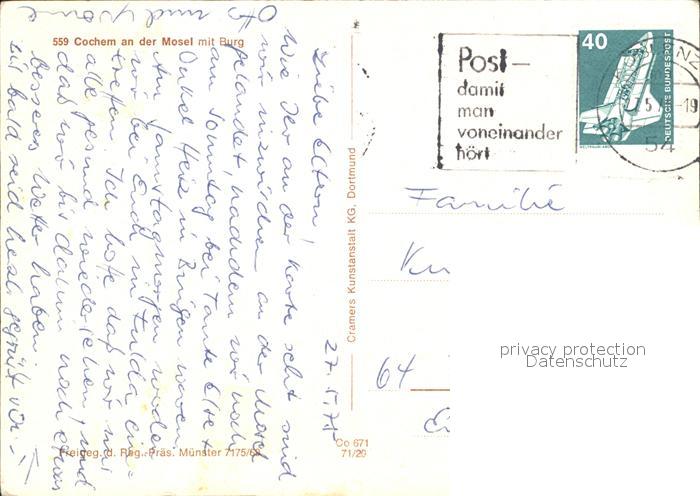 559 Cochem an der Mosel mit Burg
27. 5. 75
Liebe Eltern!
Wie Ihr an der Karte seht sind
wir inzwischen an der Mosel
gelandet, nachdem wir noch
am Sonntag bei Tante Else +
Onkel Heise in Bingen waren.
Am Samstagmorgen werden
wir bei Euch in Fulda ein-
treffen. Ich hoffe daß wir uns
alle gesund wiedersehen und
daß wir bis dahin noch etwas
besseres Wetter haben.
Bis bald seid herzl. gegrüßt von
und
Freigeg. d. Reg.-Präs. Münster 7175/68
Cramers Kunstanstalt KG, Dortmund
Co 671
71/29
Post-
damit
man
voneinander
hört
40
DEUTSCHE BUNDESPOST
5
-19
54
Familie
64
privacy protection
Datenschutz